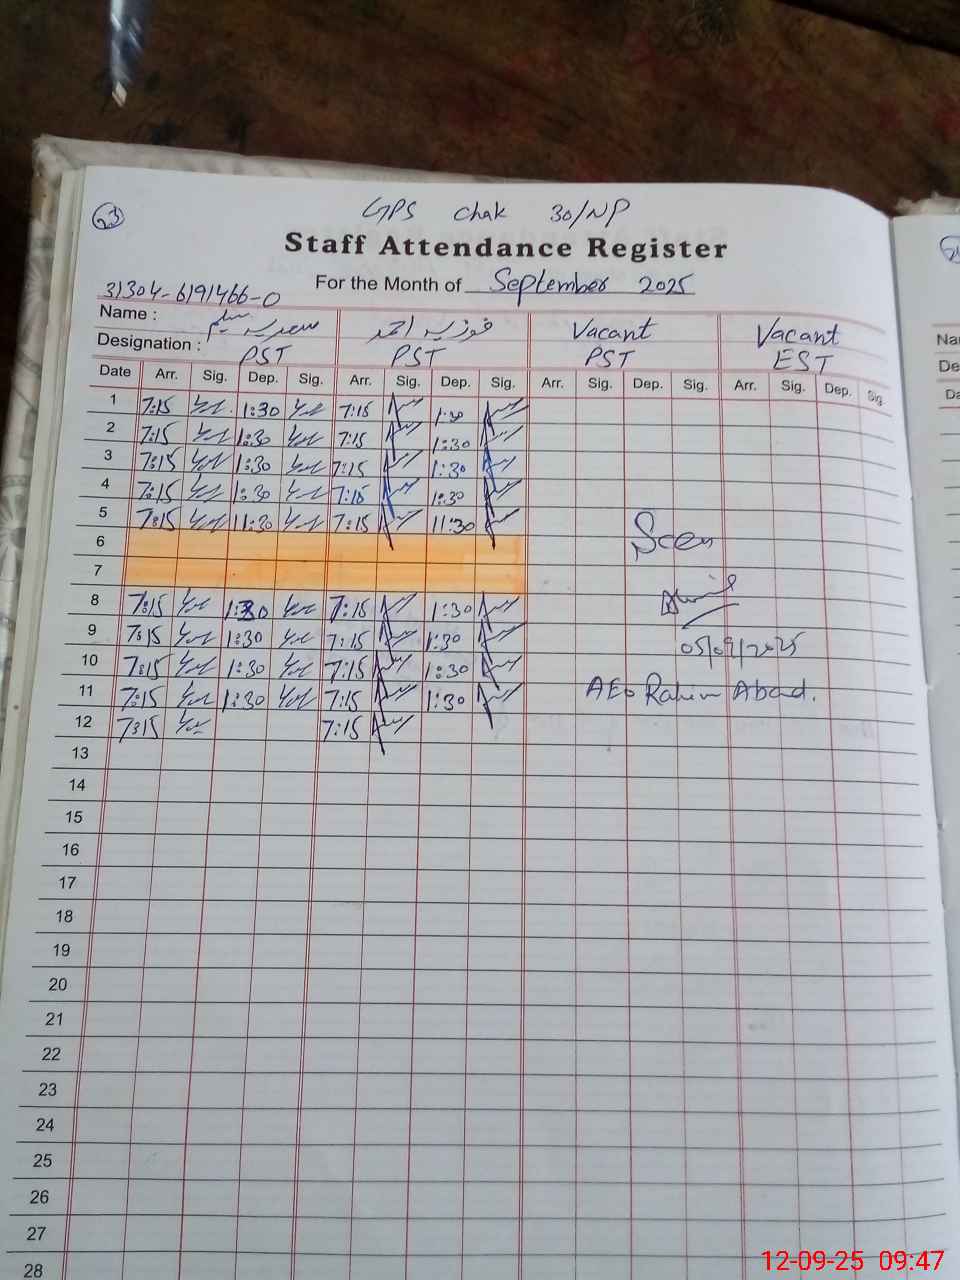 23
GPS chak 30/NP
Staff Attendance Register
For the Month of September 2025
31304-6191466-0
Name : سعدیہ سلیم فوزیہ احمد Vacant Vacant
Designation : PST PST PST EST
Date Arr. Sig. Dep. Sig. Arr. Sig. Dep. Sig. Arr. Sig. Dep. Sig. Arr. Sig. Dep. Sig
1 7:15 1:30 7:15 1:30
2 7:15 1:30 7:15 1:30
3 7:15 1:30 7:15 1:30
4 7:15 1:30 7:15 1:30
5 7:15 11:30 7:15 11:30
Seen
6
7
8 7:15 1:30 7:15 1:30
9 7:15 1:30 7:15 1:30
05/09/2025
10 7:15 1:30 7:15 1:30
11 7:15 1:30 7:15 1:30
AEo Rahim Abad.
12 7:15 7:15
13
14
15
16
17
18
19
20
21
22
23
24
25
26
27
28
Na
De
Da
12-09-25 09:47